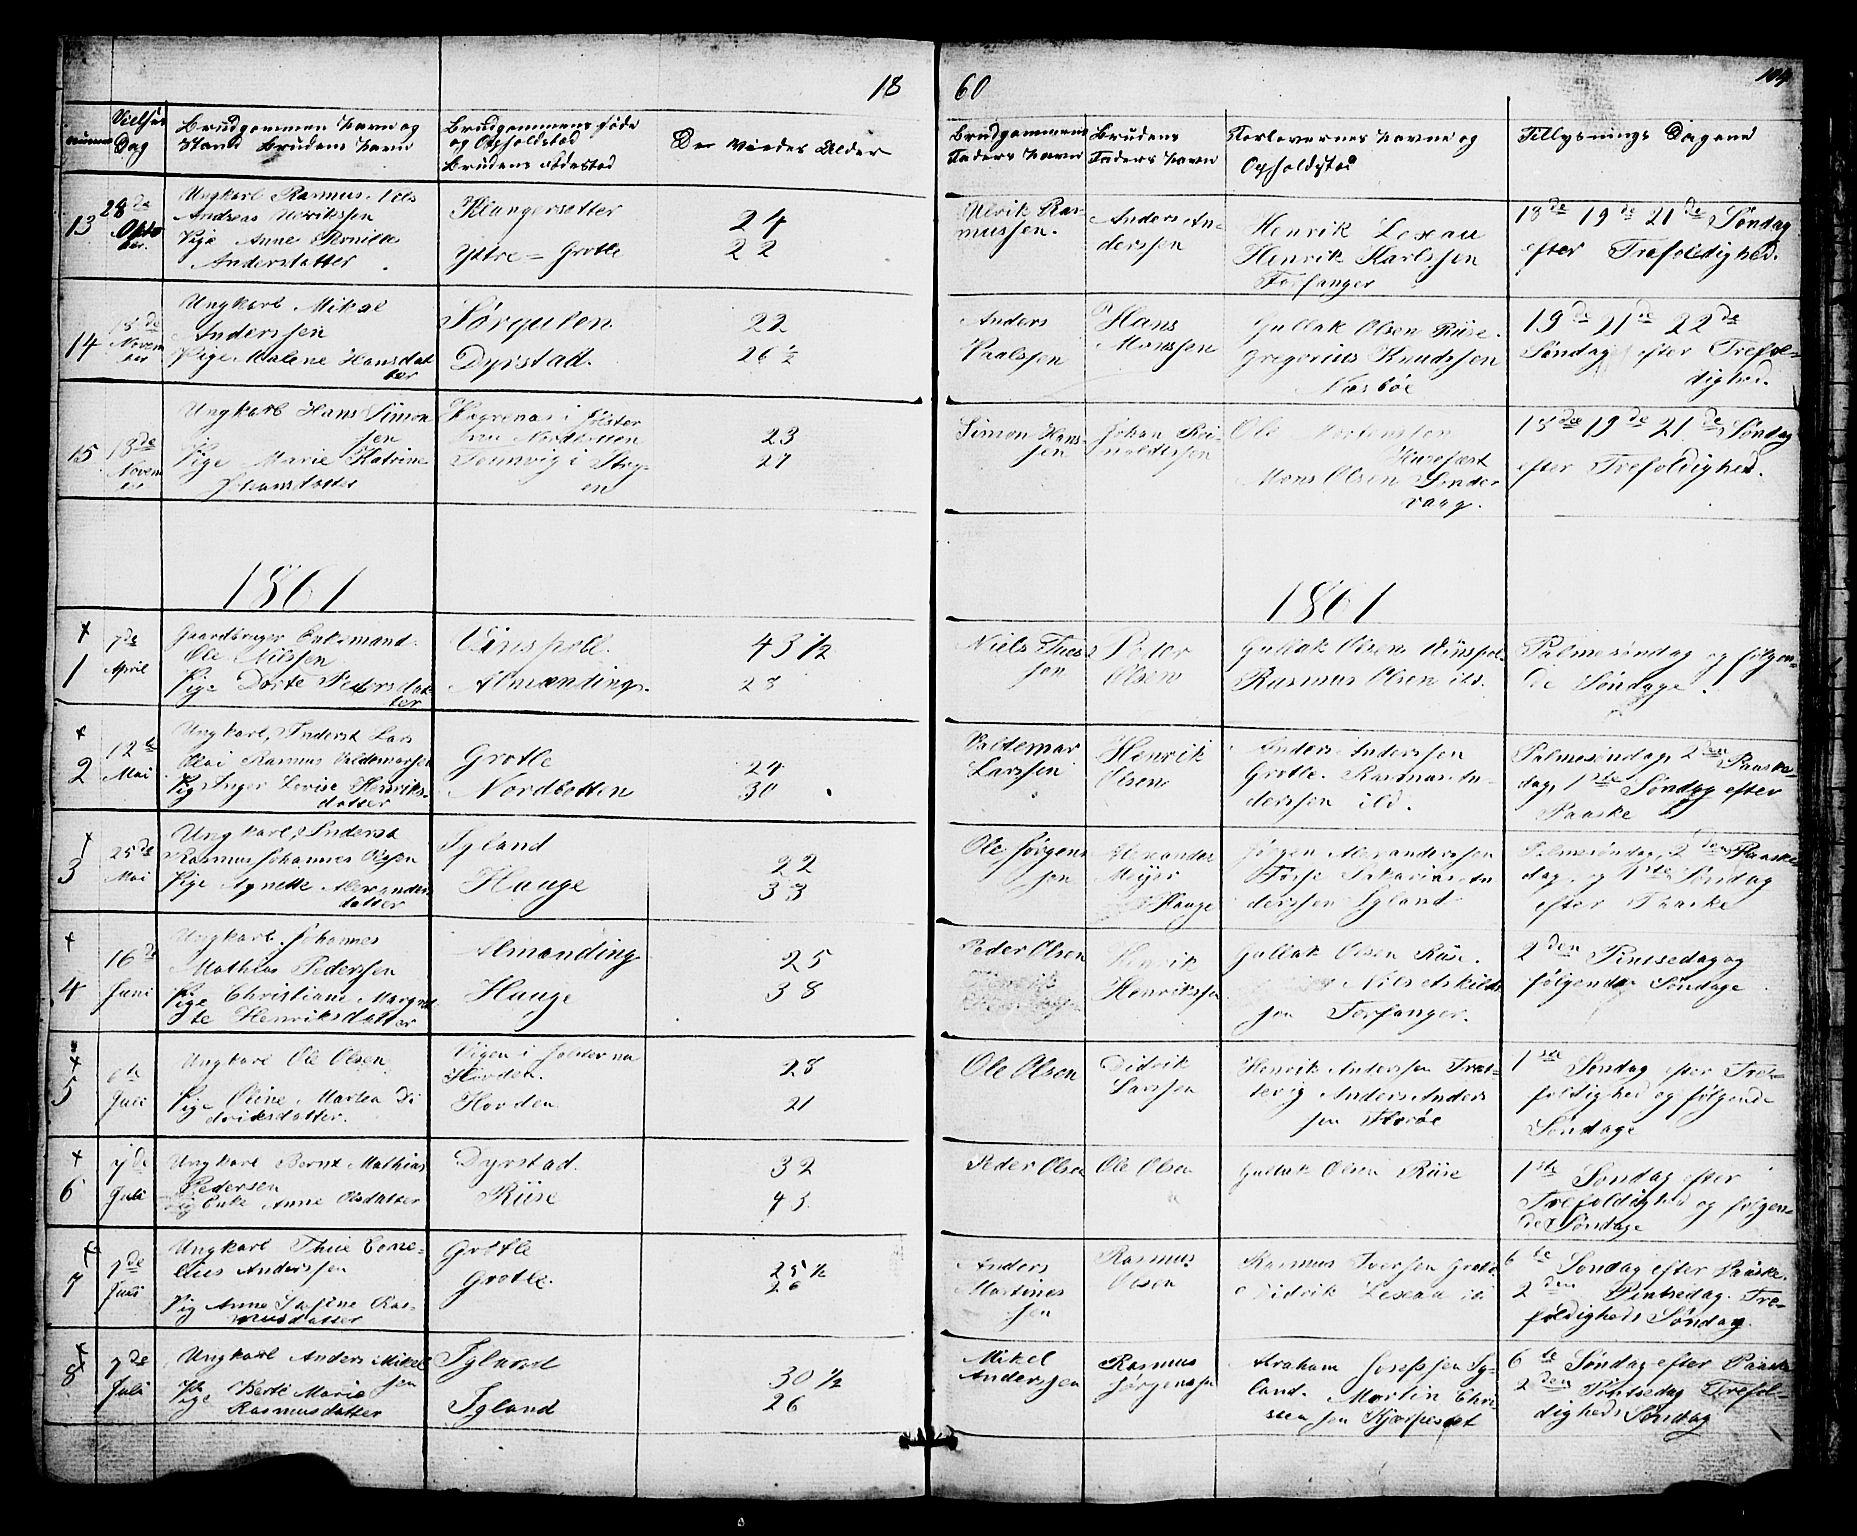 18
60
Vielses Dag
Brudgommens Navn og
Stand Brudens Navn
Brudgommens Føde
og Opholdsted
Brudens Fødested
De viedes Alder
Brudgommens
Faders Navn
Brudens
Faders Navn
Forlovernes Navne og
Opholdsted
Tillysnings Dagene
13
28de
Octo
ber.
Ungkarl Rasmus
Andreas Ulrikssen
Pige Anne Pernille
Andersdatter
Klungersetter
Ytre = Grotle
24
22
Ulrik Ras-
mussen.
Anders An-
derssen
Henrik Lexau
Henrik Karlssen
Torfanger
18de 19de 21de Søndag
efter Trefoldighed.
14
Novem
ber
Ungkarl Mikal
Anderssen
Pige Malene Hansdat
ter
Sørgulen
Dyrstad.
22
26 1/2
Anders
Paalssen
Hans
Monssen
Gullak Olsen Riise.
Gregorius Knudssen
Næsbøe
19de 21de 22de
Søndag efter Trefol-
dighed.
15
18de
Novem
ber
Ungkarl Hans Simon
sen
Pige Marie Katrine
Johansdatter
i Jølster
Nordbotten
i Stry-
en
23
27
Simon Hans-
sen
Johan Rei-
noldtssen
Ole
Mons Olsen Sinder
vaag.
18de 19de 21de Søndag
efter Trefoldighed.
1861
1861
1
7de
April
Gaardbruger Enkemand
Ole Nilssen
Pige Dorte Pedersdat
ter
Vinspoll.
Almending.
43 1/2
28
Niels Thes
sen
Peder
Olsen
Gullak Olsen Vinspol
Rasmus Olsen ibd.
Palmesøndag og følgen-
de Søndage.
2
12te
Mai
Ungkarl, Inderst Lars
Elai Rasmus Valdemarssen
Pig Inger Lovise Henriks-
datter
Grotle
Nordbotten
24
30
Valdemar
Larssen
Henrik
Olsen
Anders Anderssen
Grotle. Rasmus An-
derssen ibd.
Palmesøndag, 2den Paaske-
dag, 1ste Søndag efter
Paaske
3
25de
Mai
Ungkarl, Inderst
Rasmus Johannes Olssen
Pige Agnette Alexanders
datter
Igland
Hauge
22
33
Ole Jørgens
sen
Alexander
Meyer
Hauge
Jørgen Alexanderssen
Sakarias An
derssen Igland
Palmesøndag, 2den Paaske
dag, og 1ste Søndag
efter Paaske
4
16de
Juni
Ungkarl. Johannes
Mathias Pederssen
Pige Christiane Margre
te Henriksdatter
Almending
Hauge
25
38
Peder Olsen
Henrik
Henrikssen
Gullak Olsen Riise.
Nils
sen Torfanger.
2den Pintsedag og
følgende Søndage
5
6te
Juli
Ungkarl Ole Olsen
Pige Oline Martea Di
driksdatter.
Vigen i Jølster nu
Hovden.
Hovden.
28
21
Ole Olsen
Didrik
Larssen
Henrik Anderssen Træt-
tevig Anders Anders
sen Florøe
1ste Søndag efter Tre-
foldighed og følgende
Søndage
6
7de
Juli
Ungkarl Bernt Mathias
Pedersen
Enke Anne Olsdatter
Dyrstad.
Riise
32
43
Peder Olsen
Ole Olsen
Gullak Olsen Riise
1ste Søndag efter
Trefoldighed og følgen-
de Søndage
7
7de
Juli
Ungkarl Thue Corne-
lius Anderssen
Pig Anne Stefine Ras-
musdatter
Grotle
Grotle.
25 1/2
26
Anders
Martines
sen
Rasmus
Olsen
Rasmus Iverssen Grotle
Didrik Lexau ibd
6te Søndag efter Paaske.
2den Pintsedag. Tre-
foldigheds Søndag.
8
7de
Juli
Ungkarl Anders Mikel
sen
Pige Berte Marie
Rasmusdatter
Igland
Igland
30 1/2
26
Mikel
Anderssen
Rasmus
Jørgenssen
Abraham Josefssen Ig-
land. Martin Chri-
1ste
6te Søndag efter Paaske
2den Pintsedag Trefol-
digheds Søndag